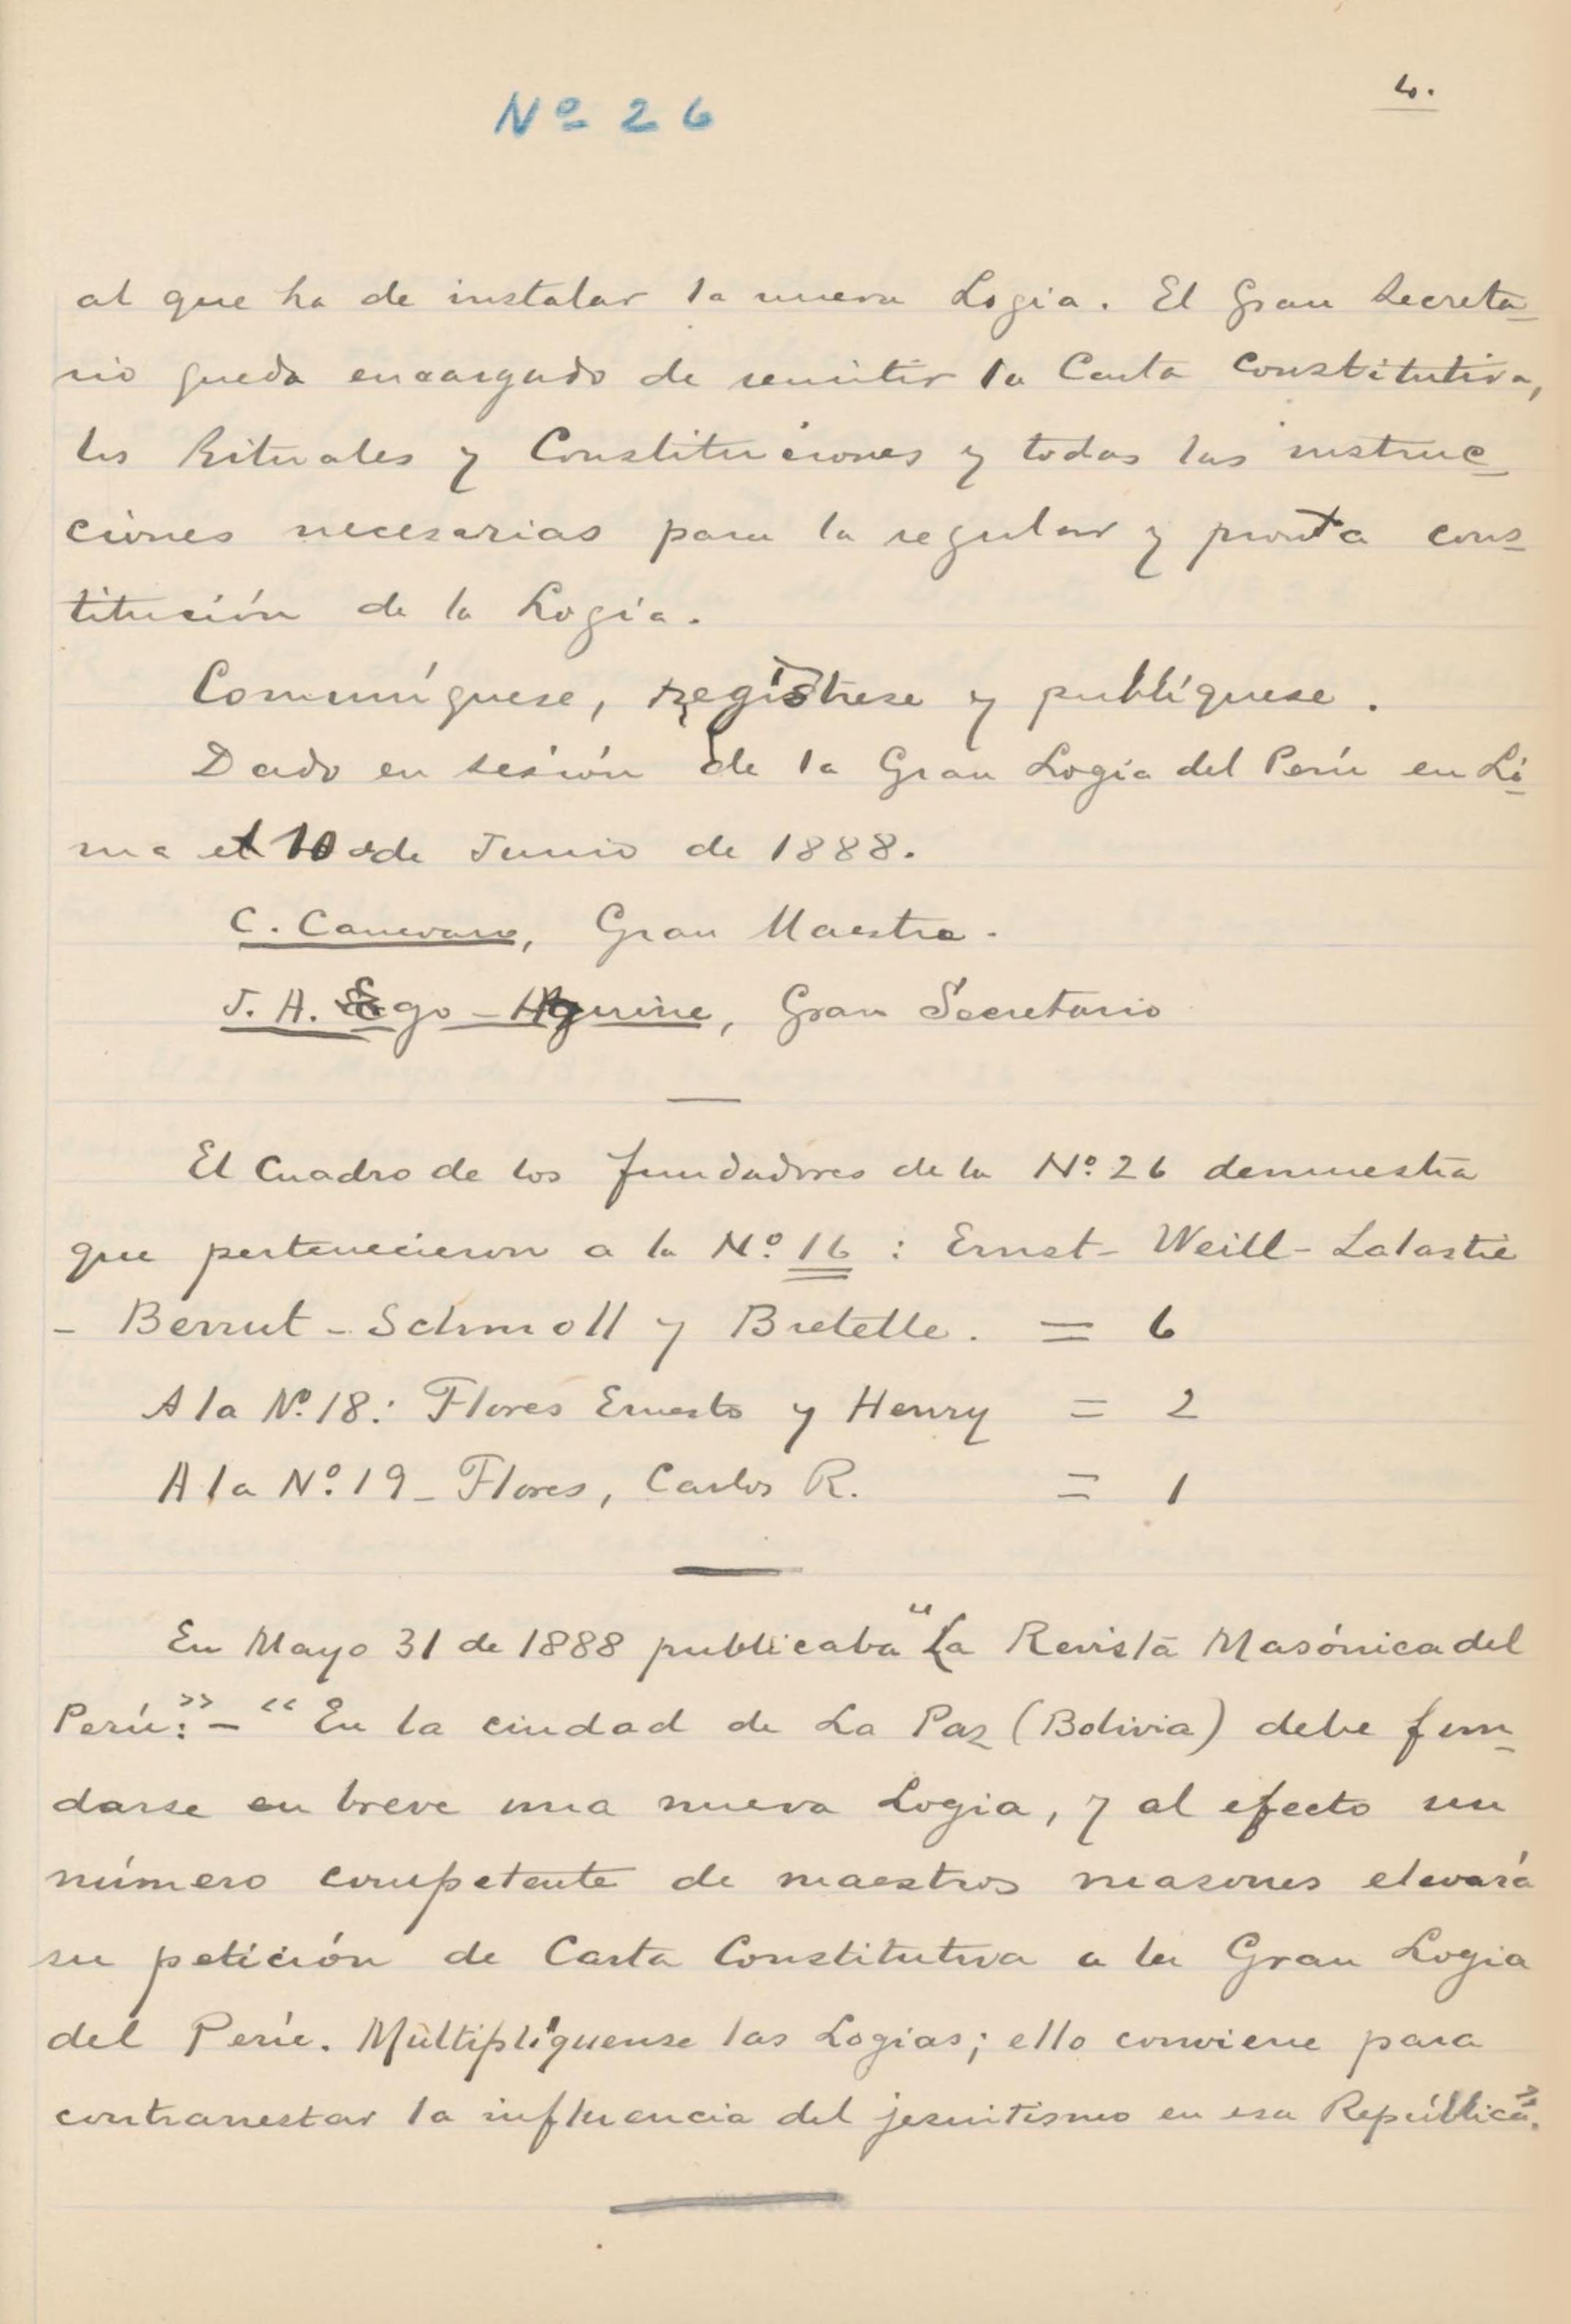 Nº 26
4.
al que ha de instalar la nueva Logia. El Gran Secreta-
rio queda encargado de remitir la Carta Constitutiva,
los Rituales y Constituciones y todas las instruc-
ciones necesarias para la regular y pronta cons-
titución de la Logia.
Comuníquese, regístrese y publíquese.
Dado en sesión de la Gran Logia del Perú en Li-
ma el 10 de Junio de 1888.
C. Canevaro, Gran Maestro.
J. A. Ego-Aguirre, Gran Secretario
El Cuadro de los fundadores de la Nº 26 demuestra
que pertenecieron a la Nº 16 : Ernst - Weill - Lalastie
- Berrut - Schmoll y Bretelle. = 6
A la Nº 18: Flores Ernesto y Henry = 2
A la Nº 19 - Flores, Carlos R. = 1
En Mayo 31 de 1888 publicaba "La Revista Masónica del
Perú:" - "En la ciudad de La Paz (Bolivia) debe fun-
darse en breve una nueva Logia, y al efecto un
número competente de maestros masones elevará
su petición de Carta Constitutiva a la Gran Logia
del Perú. Multiplíquense las Logias; ello conviene para
contrarrestar la influencia del jesuitismo en esa República".